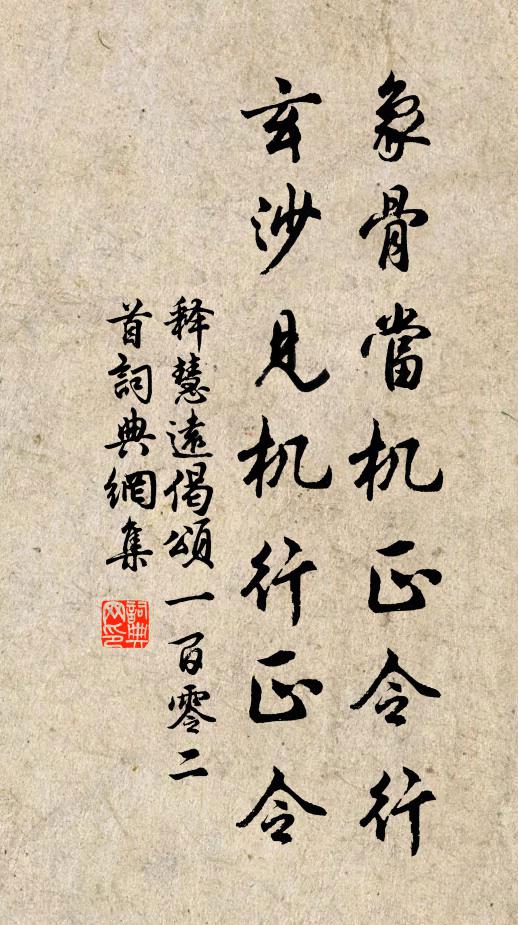 象骨當机正令行
玄沙見机行正令
释慧遠偈頌一百零二
首詞典網集
詞典网印